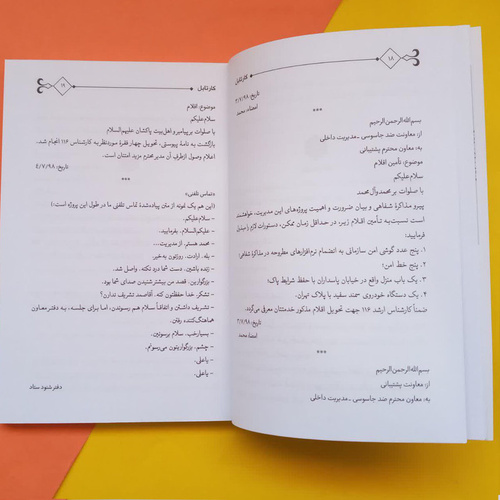 ۱۸
کارتابل
تاریخ: ۲/۷/۹۸
امضاء: محمد
***
بسم‌الله‌الرحمن‌الرحیم
از: معاونت ضد جاسوسی ـ مدیریت داخلی
به: معاون محترم پشتیبانی
موضوع: تأمین اقلام
سلام‌علیکم
با صلوات بر محمد و آل‌محمد
پیرو مذاکرهٔ شفاهی و بیان ضرورت و اهمیت پروژه‌های این مدیریت، خواهشمند
است نسبت‌به تأمین اقلام زیر، در حداقل زمان ممکن، دستورات لازم را مبذول
فرمایید:
۱. پنج عدد گوشی امن سازمانی به انضمام نرم‌افزارهای مطروحه در مذاکرهٔ شفاهی؛
۲. پنج خط امن؛
۳. یک باب منزل واقع در خیابان پاسداران با حفظ شرایط پاک؛
۴. یک دستگاه خودروی سمند سفید با پلاک تهران.
ضمناً کارشناس ارشد ۱۱۶ جهت تحویل اقلام مذکور خدمتتان معرفی می‌گردد.
تاریخ: ۳/۷/۹۸
امضاء: محمد
***
بسم‌الله‌الرحمن‌الرحیم
از: معاونت پشتیبانی
به: معاون محترم ضد جاسوسی ـ مدیریت داخلی
۱۹
کارتابل
موضوع: اقلام
سلام‌علیکم
با صلوات بر پیامبر و اهل‌بیت پاکشان علیهم‌السلام
بازگشت به نامهٔ پیوستی، تحویل چهار فقرهٔ موردنظر به کارشناس ۱۱۶ انجام شد.
اعلام وصول ازطرف آن مدیر محترم مزید امتنان است.
تاریخ: ۵/۷/۹۸
***
«تماس تلفنی»
(این هم یک نمونه از متن پیاده‌شدهٔ تماس تلفنی ما در طول این پروژه است:)
– سلام‌علیکم.
– علیکم‌السلام. بفرمایید.
– محمد هستم. از مدیریت...
– بله. ارادت. روزتون به‌خیر.
– زنده باشین. دست شما درد نکنه. واصل شد.
– بزرگوارین. قصد من بیشتر شنیدن صدای شما بود.
– تشکر. خدا حفظتون کنه. آقاصمد تشریف ندارن؟
– تشریف داشتن و اتفاقاً سلام هم رسوندن، اما برای جلسه، به دفتر معاون
هماهنگ‌کننده رفتن.
– بسیار خب. سلام برسونین.
– چشم. بزرگواریتون می‌رسونم.
– یاعلی.
– یاعلی.
دفتر شنود ستاد